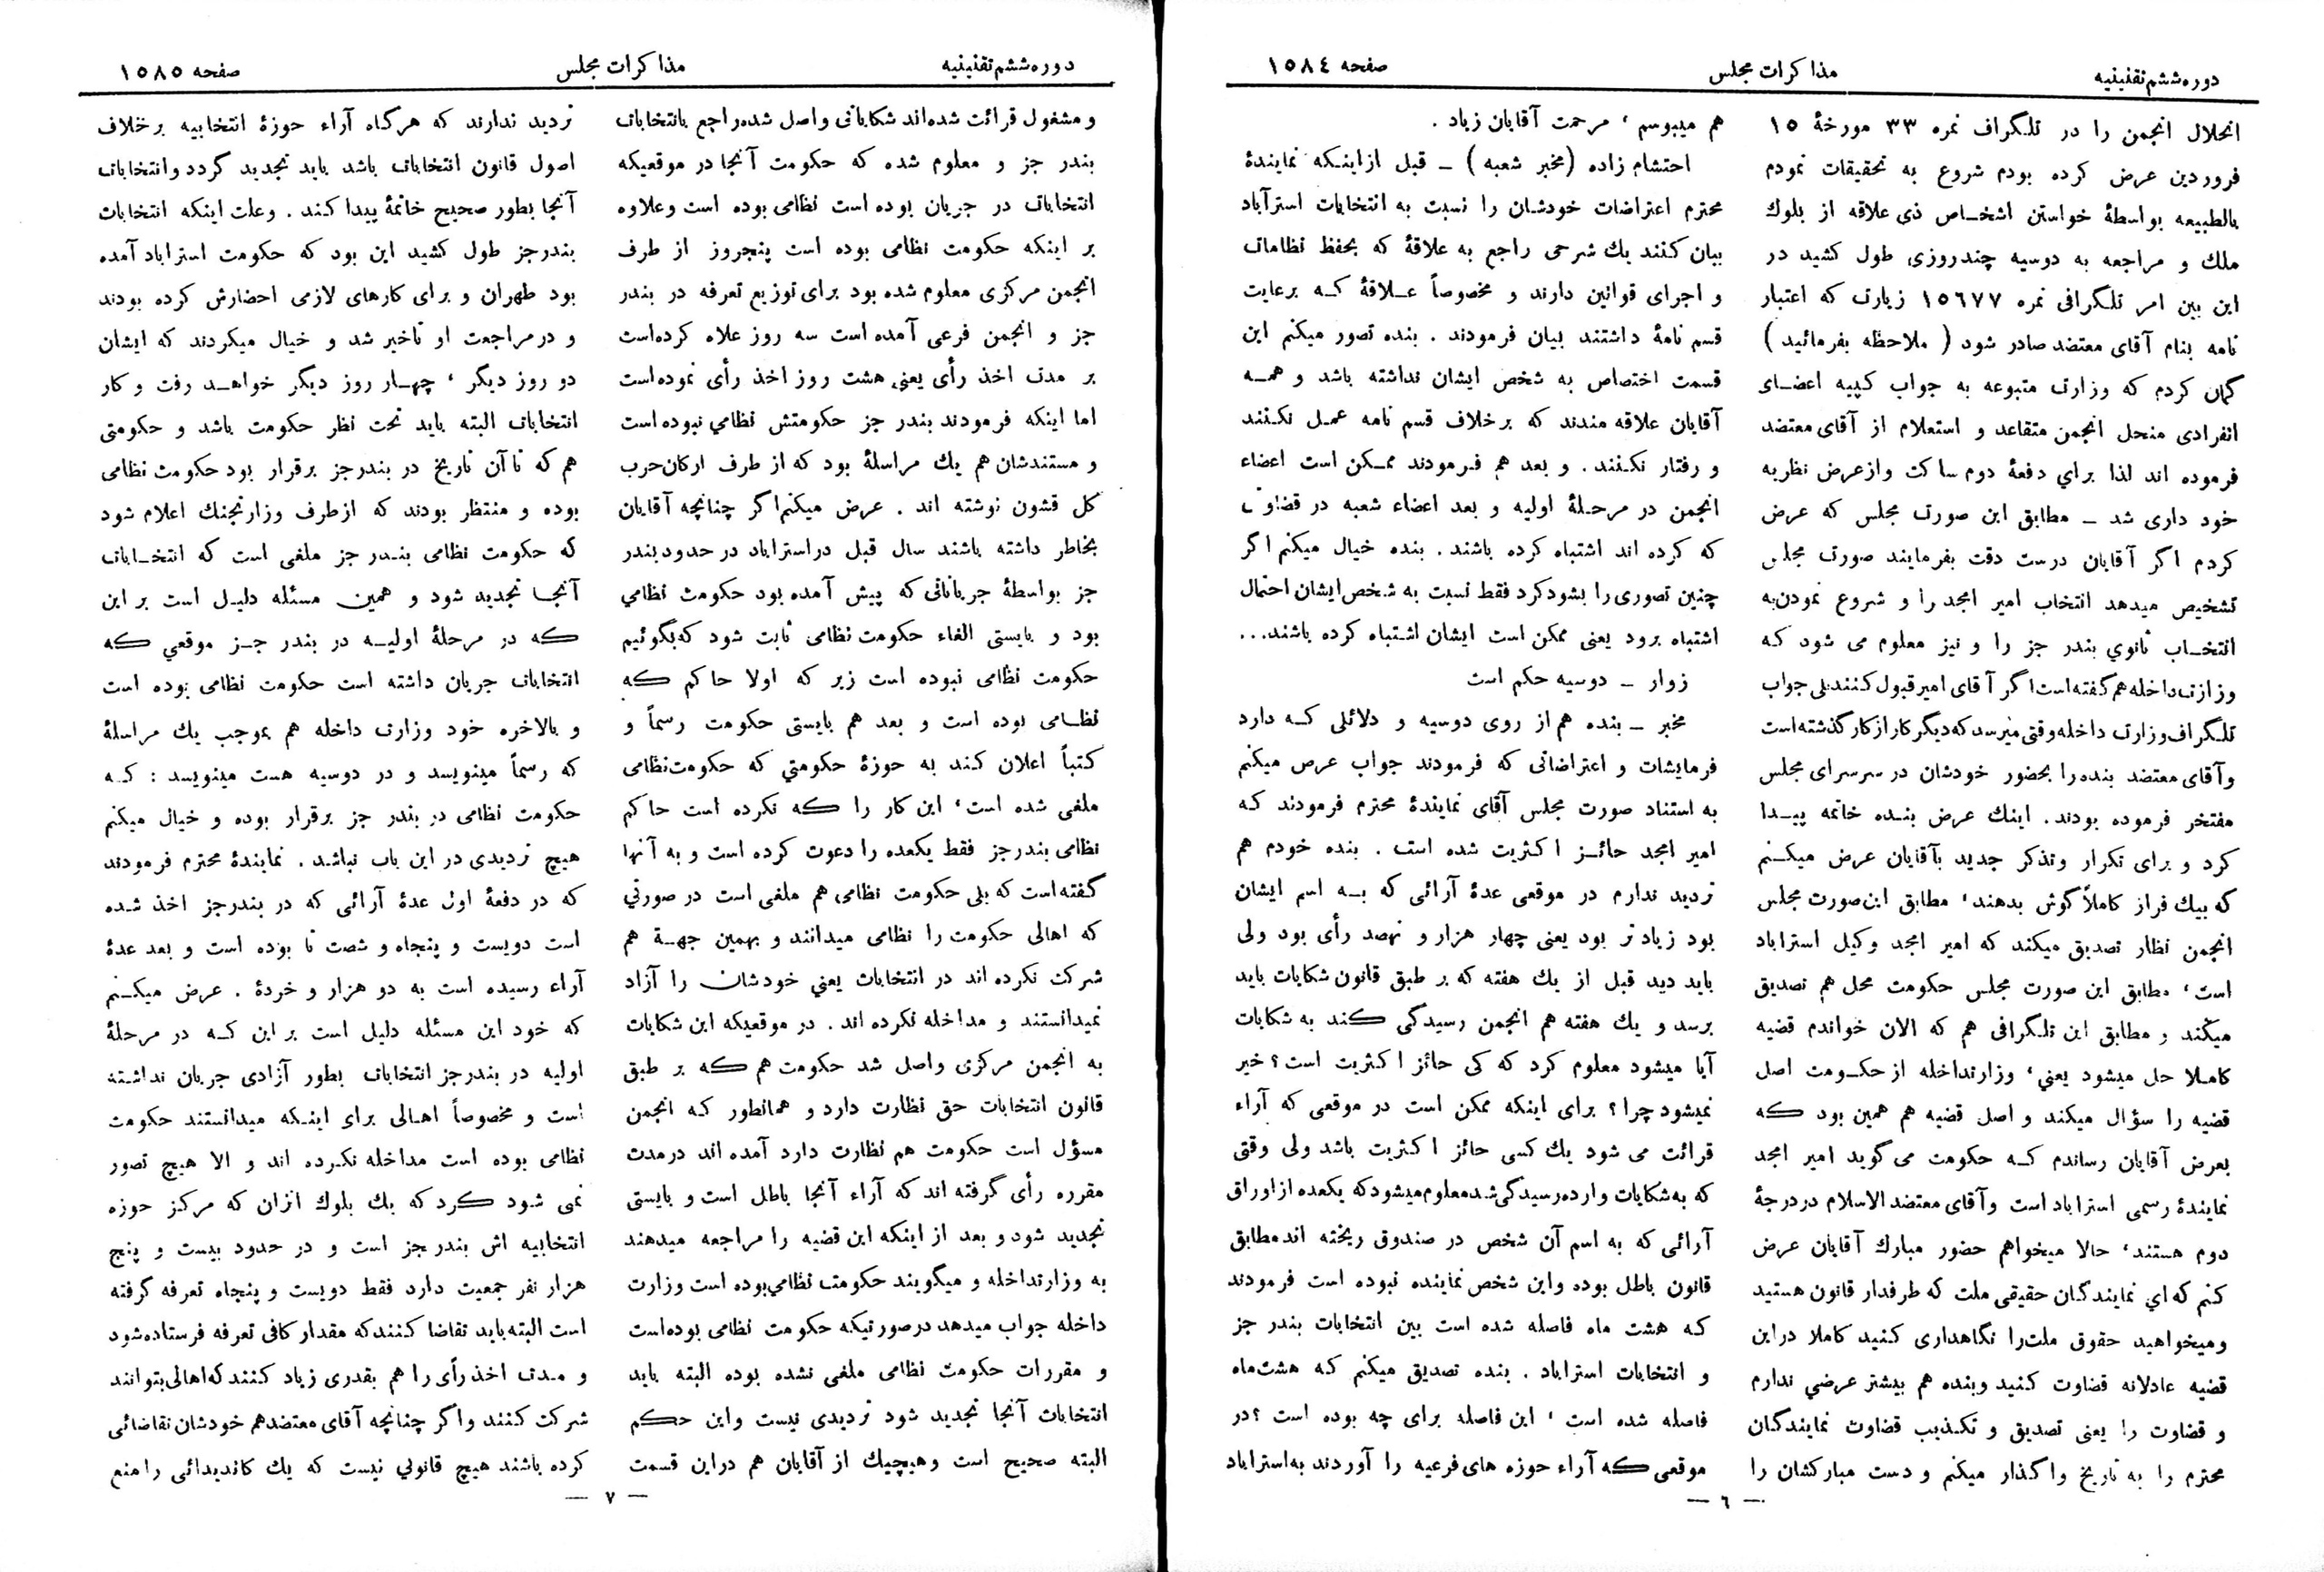 دوره ششم تقنینیه
مذاکرات مجلس
صفحه ۱۵۸٤
انحلال انجمن را در تلگراف نمره ۳۳ مورخهٔ ۱۵
فروردین عرض کرده بودم شروع به تحقیقات نمودم
بالطبیعه بواسطهٔ خواستن اشخاص ذی علاقه از بلوك
ملك و مراجعه به دوسیه چندروزی طول کشید در
این بین امر تلگرافی نمره ۱۵٦۷۷ زیارت که اعتبار
نامه بنام آقای معتضد صادر شود ( ملاحظه بفرمائید )
گمان کردم که وزارت متبوعه به جواب کلیه اعضای
انفرادی منحل انجمن متقاعد و استعلام از آقای معتضد
فرموده اند لذا برای دفعهٔ دوم ساکت و از عرض نظریه
خود داری شد ــ مطابق این صورت مجلس که عرض
کردم اگر آقایان درست دقت بفرمایند صورت مجلس
تشخیص میدهد انتخاب امیر امجد را و شروع نمودن به
انتخاب ثانوي بندر جز را و نیز معلوم می شود که
وزارت داخله هم گفته است اگر آقای امیر قبول کنند بلی جواب
تلگراف وزارت داخله وقتی میرسد که دیگر کار از کار گذشته است
و آقای معتضد بنده را بحضور خودشان در سرسرای مجلس
مفتخر فرموده بودند . اینك عرض بنده خاتمه پیدا
کرد و برای تکرار و تذکر جدید بآقایان عرض میکنم
که بیك فراز کاملاً گوش بدهند، مطابق این صورت مجلس
انجمن نظار تصدیق میکند که امیر امجد وکیل استراباد
است، مطابق این صورت مجلس حکومت محل هم تصدیق
میکند و مطابق این تلگرافی هم که الان خواندم قضیه
کاملا حل میشود یعني، وزارتداخله از حکومت اصل
قضیه را سؤال میکند و اصل قضیه هم همین بود که
بعرض آقایان رساندم که حکومت می گوید امیر امجد
نمایندهٔ رسمی استراباد است و آقای معتضد الاسلام در درجهٔ
دوم هستند، حالا میخواهم حضور مبارك آقایان عرض
کنم که اي نمایندگان حقیقی ملت که طرفدار قانون هستید
و میخواهید حقوق ملت را نگاهداری کنید کاملا در این
قضیه عادلانه قضاوت کنید و بنده هم بیشتر عرضي ندارم
و قضاوت را یعنی تصدیق و تکذیب قضاوت نمایندگان
محترم را به تاریخ واگذار میکنم و دست مبارکشان را
هم میبوسم ، مرحمت آقایان زیاد .
احتشام زاده (مخبر شعبه) ــ قبل از اینکه نمایندهٔ
محترم اعتراضات خودشان را نسبت به انتخابات استرآباد
بیان کنند یك شرحی راجع به علاقهٔ که بحفظ نظامات
و اجرای قوانین دارند و مخصوصاً علاقهٔ که برعایت
قسم نامهٔ داشتند بیان فرمودند . بنده تصور میکنم این
قسمت اختصاص به شخص ایشان نداشته باشد و همه
آقایان علاقه مندند که برخلاف قسم نامه عمل نکنند
و رفتار نکنند . و بعد هم فرمودند ممکن است اعضاء
انجمن در مرحلهٔ اولیه و بعد اعضاء شعبه در قضاوتی
که کرده اند اشتباه کرده باشند . بنده خیال میکنم اگر
چنین تصوری را بشود کرد فقط نسبت به شخص ایشان احتمال
اشتباه برود یعنی ممکن است ایشان اشتباه کرده باشند...
زوار ــ دوسیه حکم است
مخبر ــ بنده هم از روی دوسیه و دلائلی که دارد
فرمایشات و اعتراضاتی که فرمودند جواب عرض میکنم
به استناد صورت مجلس آقای نمایندهٔ محترم فرمودند که
امیر امجد حائز اکثریت شده است . بنده خودم هم
تردید ندارم در موقعی عدهٔ آرائی که به اسم ایشان
بود زیادتر بود یعنی چهار هزار و نهصد رأی بود ولی
باید دید قبل از یك هفته که بر طبق قانون شکایات باید
برسد و یك هفته هم انجمن رسیدگی کند به شکایات
آیا میشود معلوم کرد که کی حائز اکثریت است؟ خیر
نمیشود چرا؟ برای اینکه ممکن است در موقعی که آراء
قرائت می شود یك کسی حائز اکثریت باشد ولی وقتی
که به شکایات وارده رسیدگی شد معلوم میشود که یکعده از اوراق
آرائی که به اسم آن شخص در صندوق ریخته اند مطابق
قانون باطل بوده و این شخص نماینده نبوده است فرمودند
که هشت ماه فاصله شده است بین انتخابات بندر جز
و انتخابات استراباد . بنده تصدیق میکنم که هشت ماه
فاصله شده است ، این فاصله برای چه بوده است ؟ در
موقعی که آراء حوزه های فرعیه را آوردند به استراباد
— ٦ —
دوره ششم تقنینیه
مذاکرات مجلس
صفحه ۱۵۸۵
و مشغول قرائت شده اند شکایاتی واصل شده راجع بانتخابات
بندر جز و معلوم شده که حکومت آنجا در موقعیکه
انتخابات در جریان بوده است نظامی بوده است و علاوه
بر اینکه حکومت نظامی بوده است پنجروز از طرف
انجمن مرکزی معلوم شده بود برای توزیع تعرفه در بندر
جز و انجمن فرعی آمده است سه روز علاه کرده است
بر مدت اخذ رأی یعنی هشت روز اخذ رأی نموده است
اما اینکه فرمودند بندر جز حکومتش نظامي نبوده است
و مستندشان هم یك مراسلهٔ بود که از طرف ارکان حرب
کل قشون نوشته اند . عرض میکنم اگر چنانچه آقایان
بخاطر داشته باشند سال قبل در استراباد در حدود بندر
جز بواسطهٔ جریاناتی که پیش آمده بود حکومت نظامي
بود و بایستی الغاء حکومت نظامی ثابت شود که بگوئیم
حکومت نظامی نبوده است زیر که اولا حاکم که
نظامی بوده است و بعد هم بایستی حکومت رسماً و
کتباً اعلان کند به حوزهٔ حکومتي که حکومت نظامی
ملغی شده است، این کار را که نکرده است حاکم
نظامی بندرجز فقط یکعده را دعوت کرده است و به آنها
گفته است که بلی حکومت نظامی هم ملغی است در صورتي
که اهالی حکومت را نظامی میدانند و بهمین جهة هم
شرکت نکرده اند در انتخابات یعني خودشان را آزاد
نمیدانستند و مداخله نکرده اند . در موقعیکه این شکایات
به انجمن مرکزی واصل شد حکومت هم که بر طبق
قانون انتخابات حق نظارت دارد و همانطور که انجمن
مسؤل است حکومت هم نظارت دارد آمده اند در مدت
مقرره رأی گرفته اند که آراء آنجا باطل است و بایستی
تجدید شود و بعد از اینکه این قضیه را مراجعه میدهند
به وزارتداخله و میگویند حکومت نظامي بوده است وزارت
داخله جواب میدهد در صورتیکه حکومت نظامی بوده است
و مقررات حکومت نظامی ملغی نشده بوده البته باید
انتخابات آنجا تجدید شود تردیدی نیست و این حکم
البته صحیح است و هیچیك از آقایان هم در این قسمت
تردید ندارند که هرگاه آراء حوزهٔ انتخابیه برخلاف
اصول قانون انتخابات باشد باید تجدید گردد و انتخابات
آنجا بطور صحیح خاتمهٔ پیدا کند . و علت اینکه انتخابات
بندرجز طول کشید این بود که حکومت استراباد آمده
بود طهران و برای کارهای لازمی احضارش کرده بودند
و در مراجعت او تأخیر شد و خیال میکردند که ایشان
دو روز دیگر ، چهار روز دیگر خواهد رفت و کار
انتخابات البته باید تحت نظر حکومت باشد و حکومتی
هم که تا آن تاریخ در بندرجز برقرار بود حکومت نظامی
بوده و منتظر بودند که از طرف وزارتجنك اعلام شود
که حکومت نظامی بندر جز ملغی است که انتخابات
آنجا تجدید شود و همین مسئله دلیل است بر این
که در مرحلهٔ اولیه در بندر جز موقعي که
انتخابات جریان داشته است حکومت نظامی بوده است
و بالاخره خود وزارت داخله هم بموجب یك مراسلهٔ
که رسماً مینویسد و در دوسیه هست مینویسد : که
حکومت نظامی در بندر جز برقرار بوده و خیال میکنم
هیچ تردیدی در این باب نباشد . نمایندهٔ محترم فرمودند
که در دفعهٔ اول عدهٔ آرائی که در بندرجز اخذ شده
است دویست و پنجاه و شصت تا بوده است و بعد عدهٔ
آراء رسیده است به دو هزار و خردهٔ . عرض میکنم
که خود این مسئله دلیل است بر این که در مرحلهٔ
اولیه در بندرجز انتخابات بطور آزادی جریان نداشته
است و مخصوصاً اهالی برای اینکه میدانستند حکومت
نظامی بوده است مداخله نکرده اند و الا هیچ تصور
نمی شود کرد که یك بلوك انزان که مرکز حوزه
انتخابیه اش بندرجز است و در حدود بیست و پنج
هزار نفر جمعیت دارد فقط دویست و پنجاه تعرفه گرفته
است البته باید تقاضا کنند که مقدار کافی تعرفه فرستاده شود
و مدت اخذ رأی را هم بقدری زیاد کنند که اهالی بتوانند
شرکت کنند و اگر چنانچه آقای معتضد هم خودشان تقاضائی
کرده باشند هیچ قانوني نیست که یك کاندیدائی را منع
— ۷ —